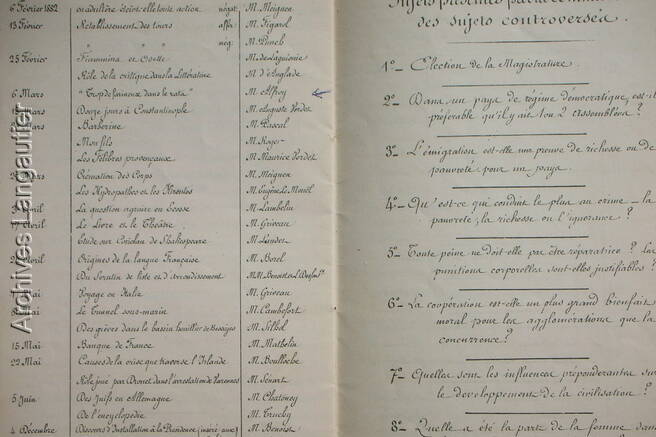 6 Février 1882 négat: M. Meignen
13 Février Rétablissement des tours affir: M. Figarol
" " nég: M. Pimel
25 Février Fiammina et Odette M. de Laguionie
Rôle de la critique dans la Littérature M. d'Anglade
6 Mars "Trop de faineux dans le rata" M. Alfroy
Mars Douze jours à Constantinople M. Auguste Verdet
Mars Barberine M. Pascal
Mon fils M. Roger
Les Félibres provençaux M. Maurice Verdet
Mars Crémation des Corps M. Meignen
Les Hydropathes et les Hirsutes M. Eugène
Avril La question agraire en Ecosse M. Lambelin
Avril Le Livre et le Théâtre M. Griveau
Etude sur Coriolan de Shakespeare M. Landes
Avril Origines de la langue Française M. Borel
Du Scrutin de liste et d'arrondissement MM. Benoist et
Mai Voyage en Italie M. Griveau
Mai Le Tunnel sous-marin M. Cambefort
Des grèves dans le bassin houiller de Bessèges M. Silhol
15 Mai Banque de France M. Matholin
22 Mai Causes de la crise que traverse l'Irlande M. Boulloche
Rôle joué par Drouet dans l'arrestation de Varennes M. Sénart
5 Juin Des Juifs en Allemagne M. Chatoney
De l'encyclopédie M. Truchy
4 Décembre Discours d'Installation à la Présidence (inséré aux M. Benoist
des sujets controversés.
1º_ Election de la Magistrature.
2º_ Dans un pays de régime démocratique, est-il
préférable qu'il y ait 1 ou 2 assemblées?
3º_ L'émigration est-elle une preuve de richesse ou de
pauvreté pour un pays.
4º_ Qu'est-ce qui conduit le plus au crime _ la
pauvreté, la richesse ou l'ignorance?
5º_ Toute peine ne doit-elle pas être réparatrice? Les
punitions corporelles sont-elles justifiables?
6º_ La coopération est-elle un plus grand bienfait
moral pour les agglomérations que la
concurrence?
7º_ Quelles sont les influences prépondérantes sur
le développement de la civilisation?
8º_ Quelle a été la part de la femme dans
Archives Tangautier